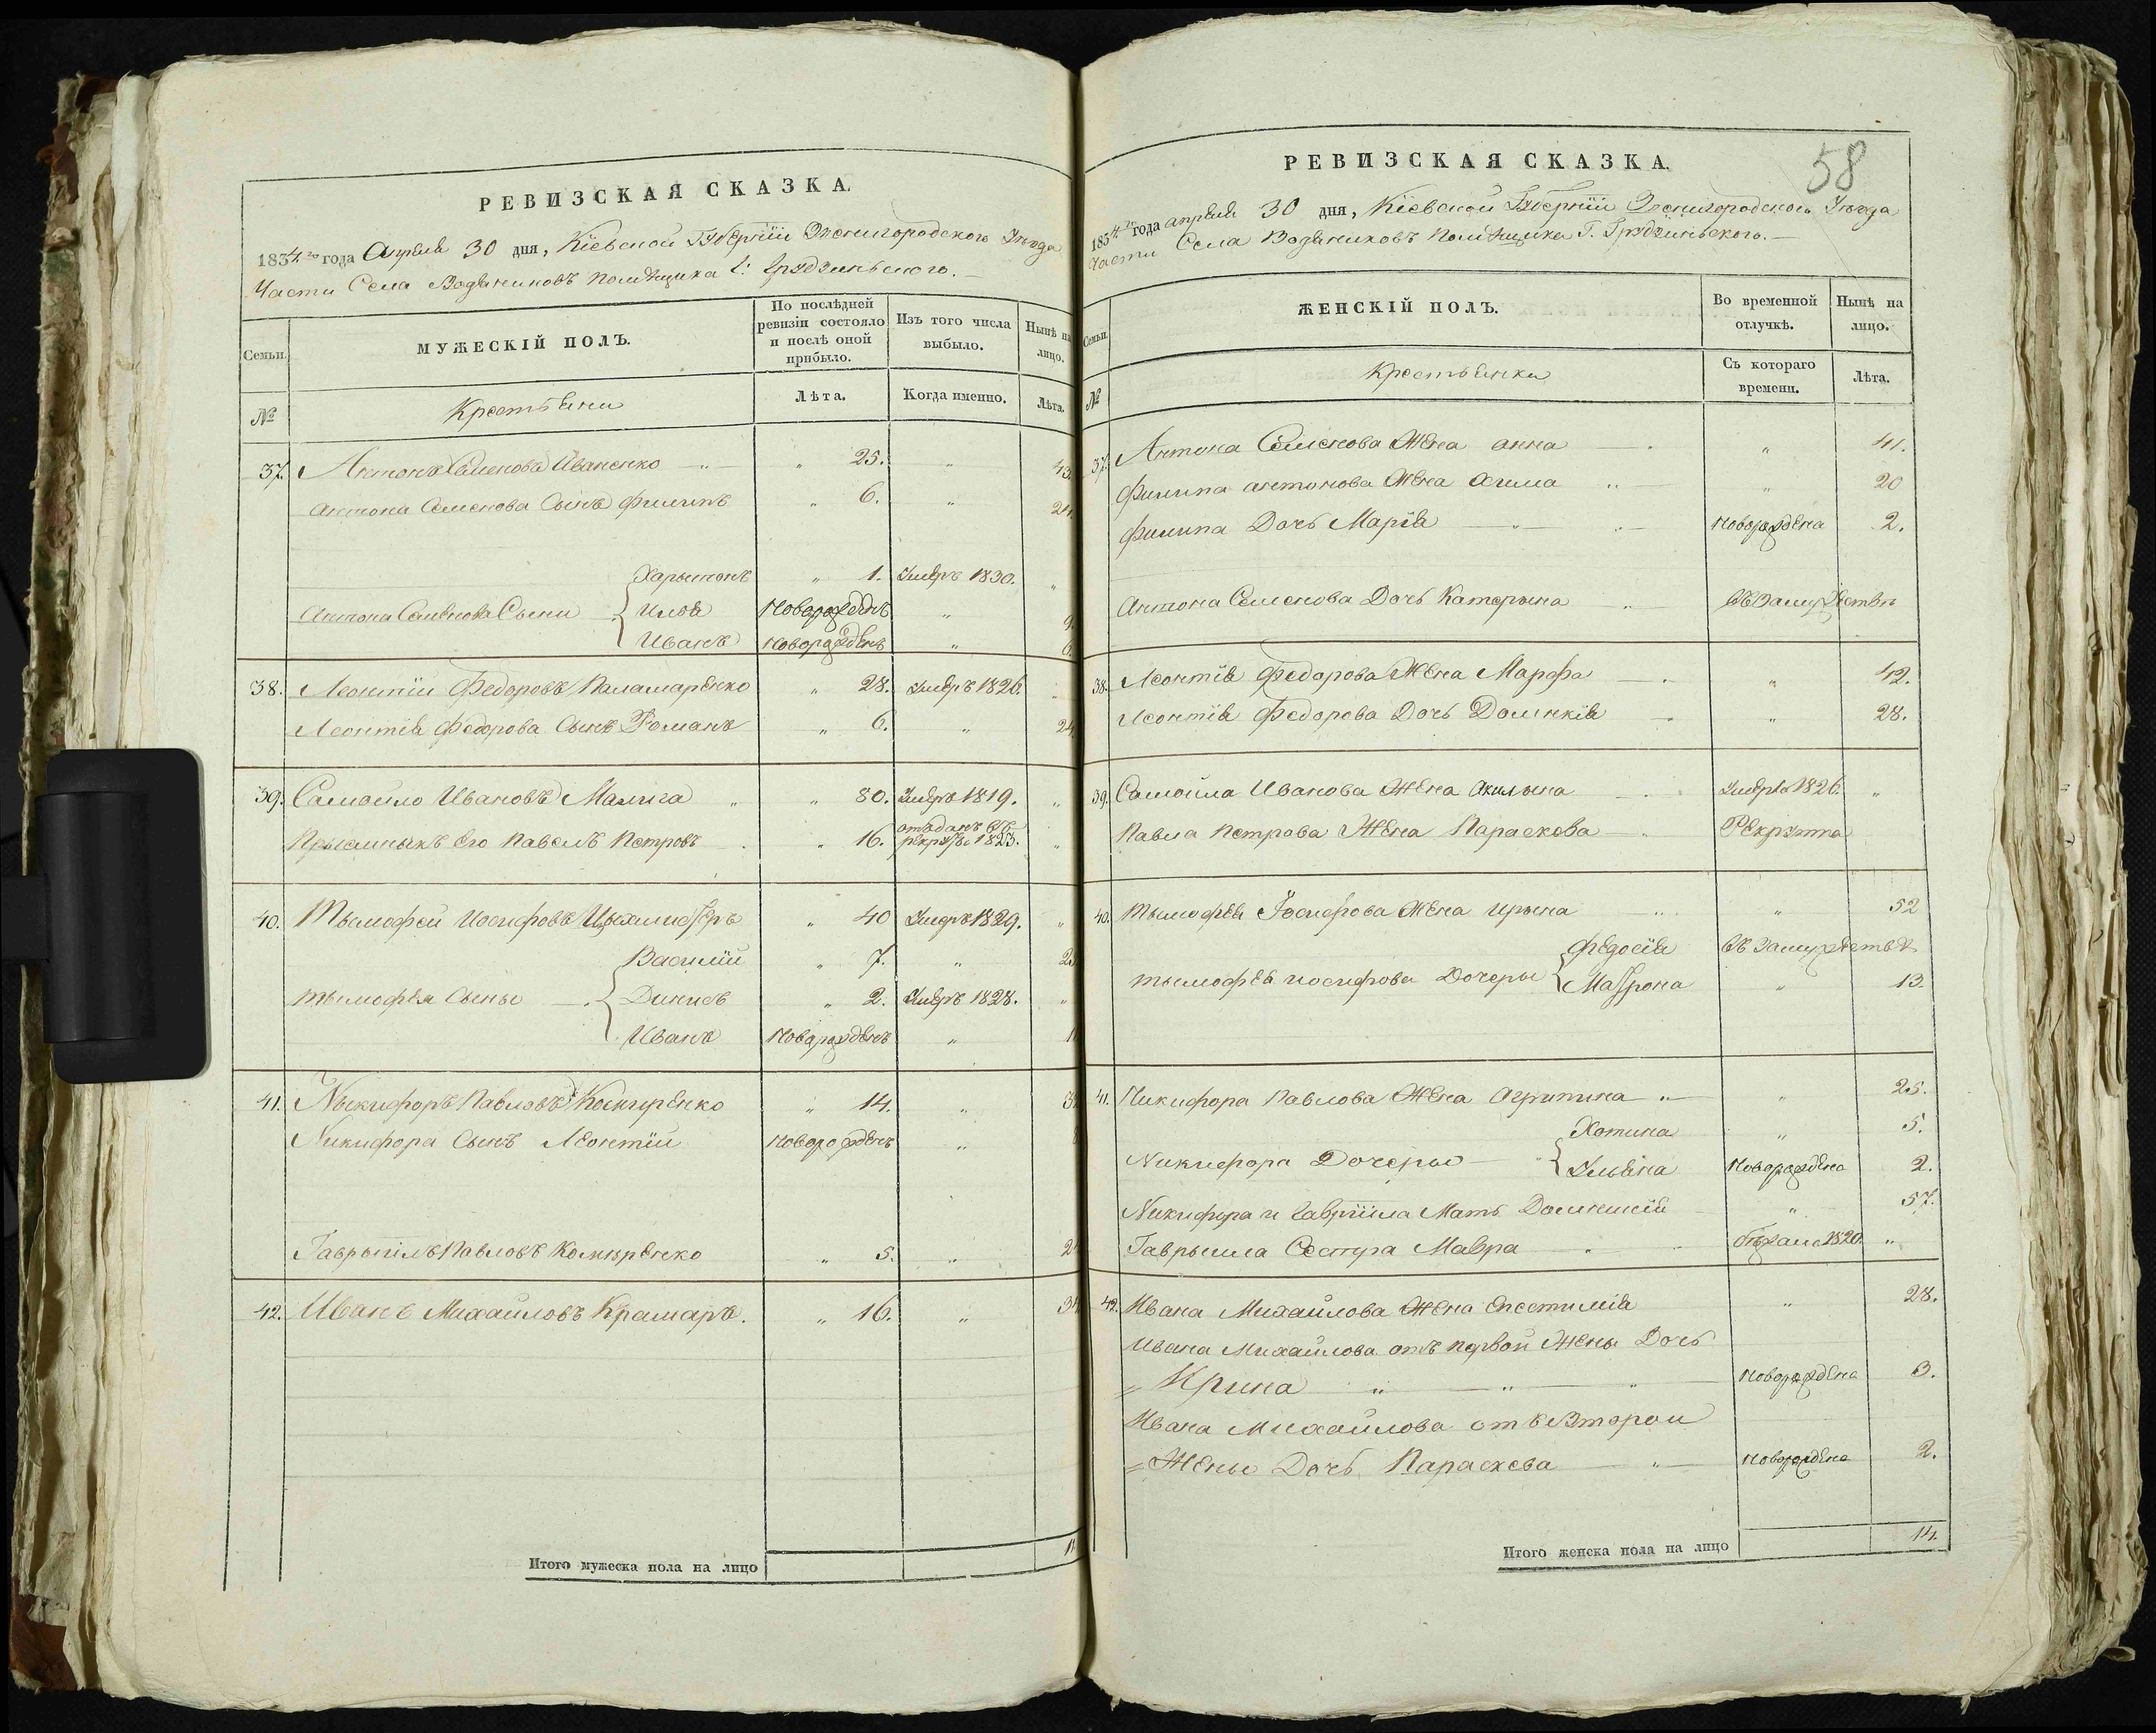 РЕВИЗСКАЯ СКАЗКА.
1834.го года Апреля 30 дня, Кіевской Губерніи Звенигородского Уезда
Части Села Водяниковъ помѣщика Г: Грудзиньского.
Семьи.
МУЖЕСКІЙ ПОЛЪ.
По послѣдней ревизіи состояло и послѣ оной прибыло.
Изъ того числа выбыло.
Нынѣ на лицо.
№
Крестьяни
Лѣта.
Когда именно.
Лѣта.
37. Антонъ Семеновъ Иваненко „ 25. „ 43.
Антона Семенова Сынъ Филипъ „ 6. „ 24.
Харытонъ „ 1. Умеръ 1830. „
Антона Семенова Сыни Илья Новорожденъ „ 9.
Иванъ Новорожденъ „ 6.
38. Леонтій Федоровъ Паламаренко „ 28. Умеръ 1826.
Леонтія Федорова Сынъ Романъ „ 6. „ 24.
39. Самойло Ивановъ Малига „ „ 80. Умеръ 1819. „
Прыемныкъ Его Павелъ Петровъ „ 16. отъданъ въ рекруты 1823. „
40. Тымофей Иосифовъ „ 40 Умеръ 1829. „
Василій „ 7. „ 25
Тымофея Сыны Динисъ „ 2. Умеръ 1828. „
Иванъ Новорожденъ „
41. Ныкифоръ Павловъ „ 14. „
Никифора Сынъ Леонтій Новорожденъ „
Гаврыілъ Павловъ „ 5. „
42. Иванъ Михайловъ Крамаръ. „ 16. „ 34
Итого мужеска пола на лицо
58
РЕВИЗСКАЯ СКАЗКА.
1834.го года апреля 30 дня, Кіевской Губерніи Звенигородского Уезда
части Села Водяниковъ помѣщика Г. Грудзиньского.
Семьи.
ЖЕНСКІЙ ПОЛЪ.
Во временной отлучкѣ.
Нынѣ на лицо.
№
Крестьянки
Съ котораго времени.
Лѣта.
37. Антона Семенова Жена анна „ 41.
Филипа антонова Жена Ахима „ „ 20
Филипа Дочь Марія „ Новорождена 2.
Антона Семенова Дочь Катерына „ въ Замужествѣ
38. Леонтія Федорова Жена Марфа „ 42.
Леонтія Федорова Дочь Домнкія „ 28.
39. Самойла Иванова Жена Акилына Умерла 1826. „
Павла Петрова Жена Параскова „ Рекрутка
40. Тымофея Іосифова Жена Ирына „ „ 52
Федосія въ Замужествѣ
тымофея иосифова Дочеры Матрона „ 13.
41. Никифора Павлова Жена Агрипина „ „ 25.
Хотина „ 5.
Никифора Дочеры Ульяна Новорождена 2.
Никифора и Гавріила Мать „ 57.
Гаврыила Сестра Мавра бѣжала 1820. „
42. Ивана Михайлова Жена Епестимія „ 28.
Ивана Михайлова отъ первой Жены Дочь
„ Ирина „ „ „ Новорождена 3.
Ивана Михайлова отъ Второй
„ Жены Дочь Параскева „ Новорождена 2.
Итого женска пола на лицо 14.